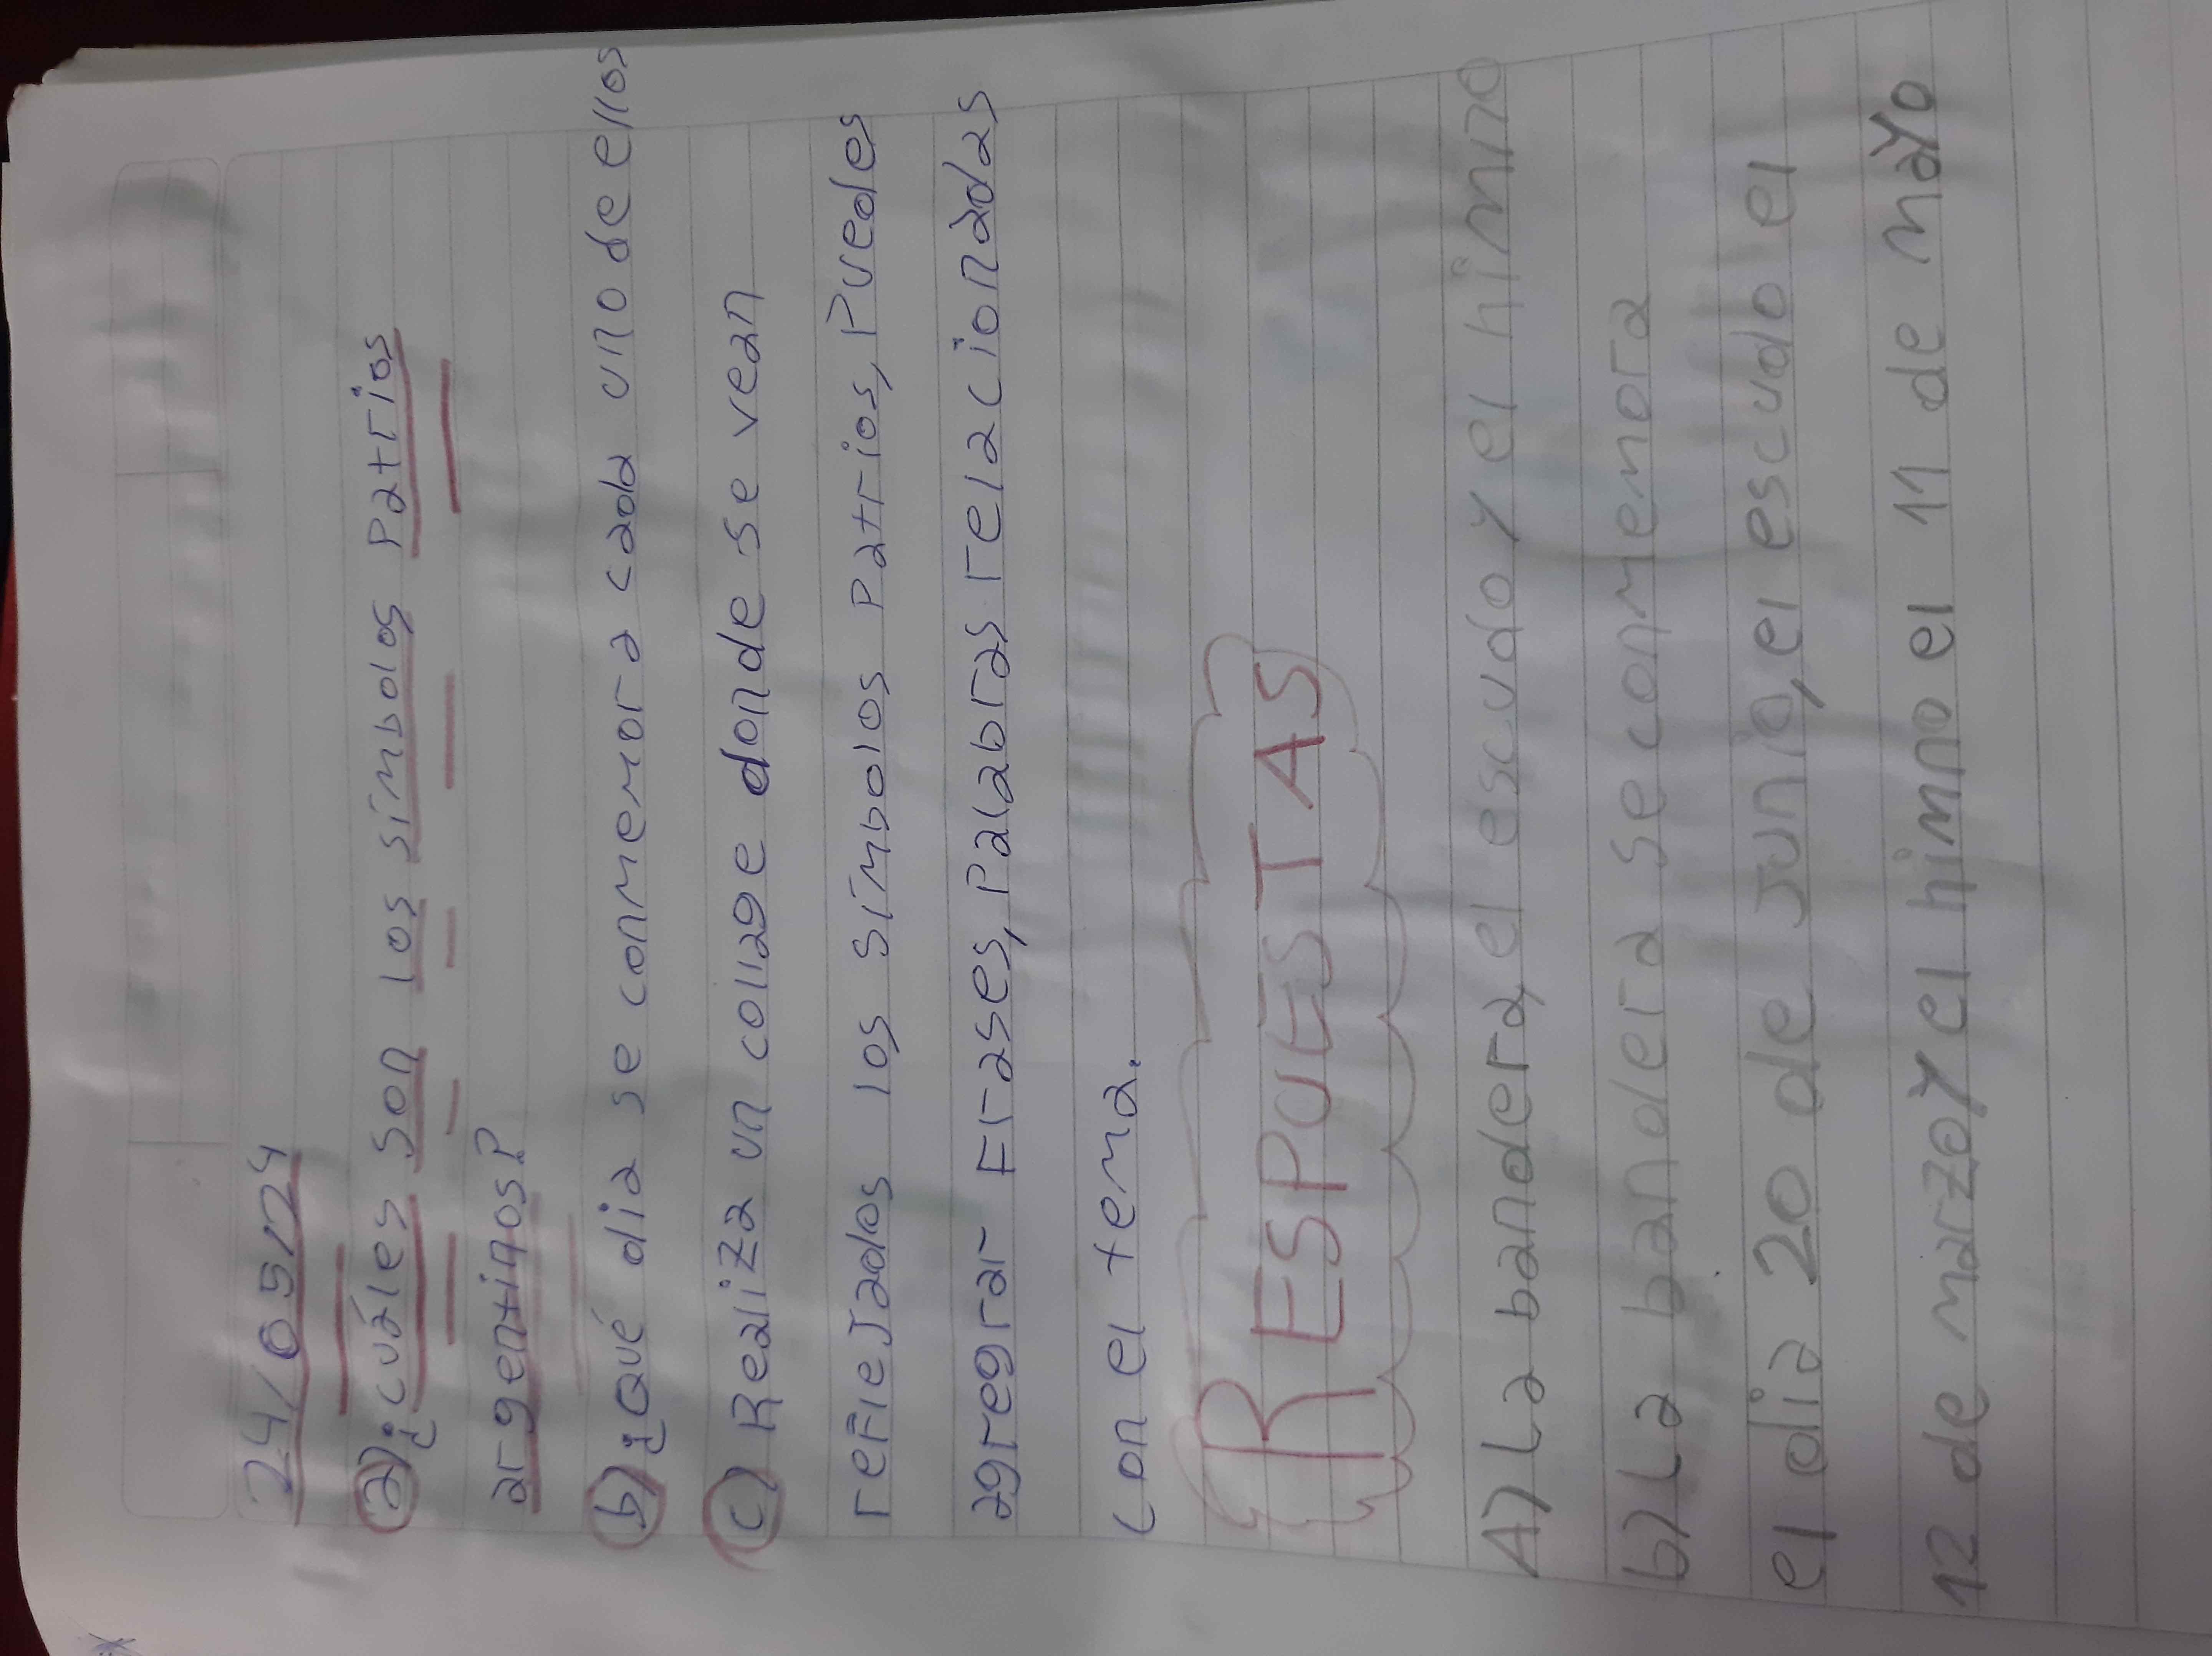 24/05/24
a) ¿cuáles son los símbolos patrios
argentinos?
b) ¿Qué dia se conmemora cada uno de ellos
c) Realiza un collage donde se vean
reflejados los símbolos patrios, Puedes
agregar Frases, Palabras relacionadas
con el tema.
RESPUESTAS
A) La bandera, el escudo y el himno
b) La bandera se conmemora
el dia 20 de Junio, el escudo el
12 de marzo y el himno el 11 de mayo